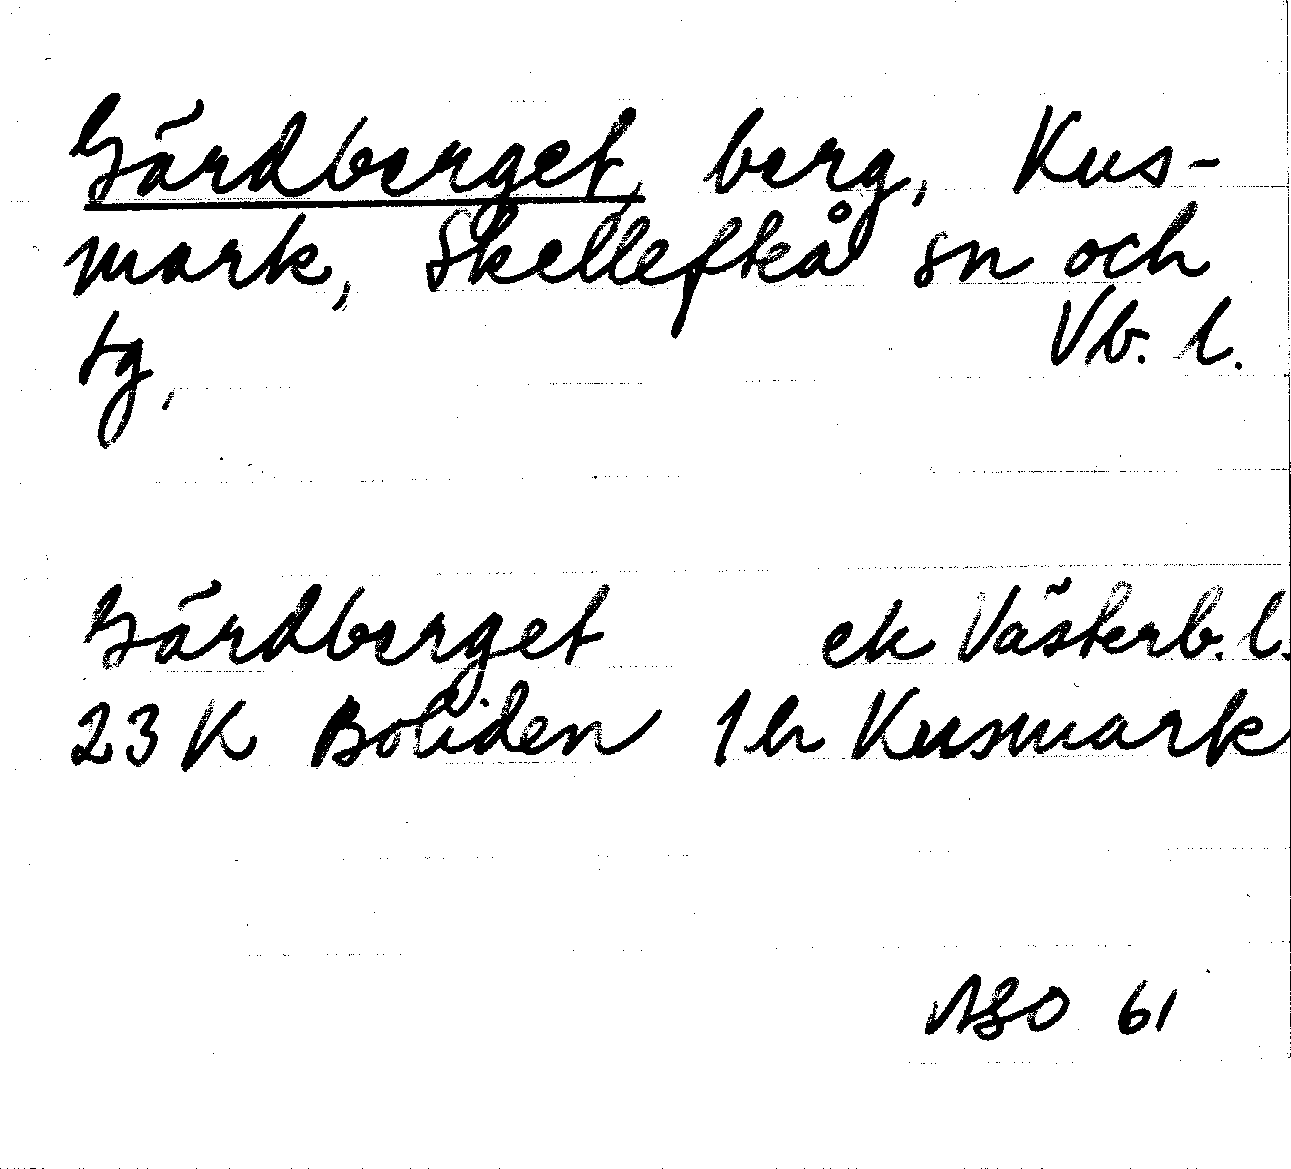 Gärdberget, berg, Kus-
mark, Skellefteå sn och
tg, Vb. l.
Gärdberget ek Västerb. l.
23 K Boliden 1 h Kusmark
ASO 61